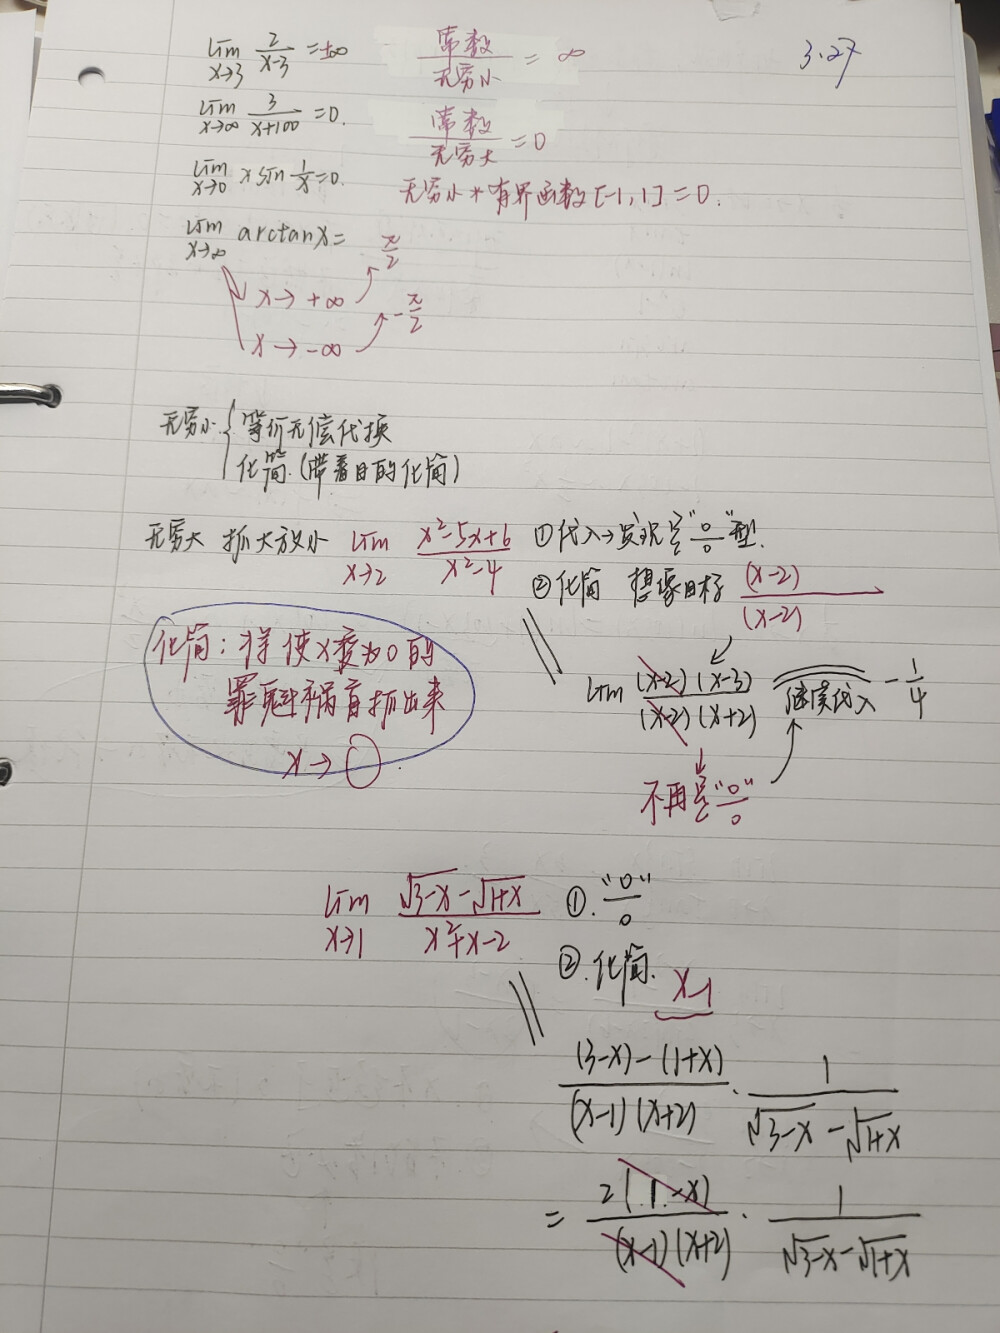 3.27
lim x→3 2/(x-3) = ±∞ 常数/无穷小 = ∞
lim x→∞ 3/(x+100) = 0. 常数/无穷大 = 0
lim x→0 x sin 1/x = 0. 无穷小*有界函数[-1,1] = 0.
lim x→∞ arctanx =
x→+∞ π/2
x→-∞ -π/2
无穷小 { 等价无偿代换
化简.(带着目的化简)
无穷大 抓大放小 lim x→2 (x²-5x+6)/(x²-4) ①代入→发现是"0/0"型.
②化简 想像目标 (x-2)/(x-2)
化简:将使x变为0的
罪魁祸首抓出来
x→○.
|| lim (x-2)(x-3)/(x-2)(x+2) 继续代入 -1/4
不再是"0/0"
lim x→1 (√3-x - √1+x)/(x²+x-2) ①."0/0"
②.化简. x-1
|| (3-x)-(1+x)/(x-1)(x+2) · 1/(√3-x - √1+x)
= 2(1-x)/(x-1)(x+2) · 1/(√3-x - √1+x)